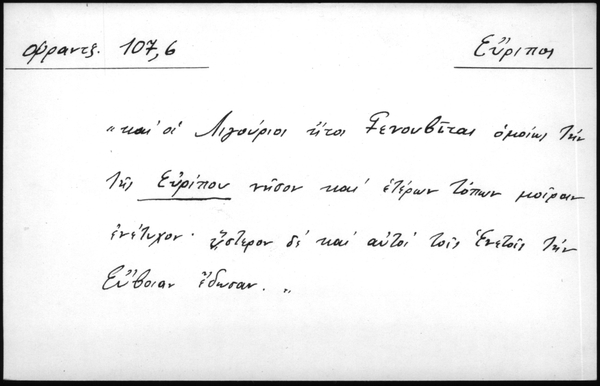 φραντζ. 107,6
Εὔριπος
"καὶ οἱ Λιγούριοι ἤτοι Γενουβῖται ὁμοίως τὴν
τῆς Εὐρίπου νῆσον καὶ ἑτέρων τόπων μοῖραν
ἐνέτυχον· ὕστερον δὲ καὶ αὐτοὶ τοῖς Ἑνετοῖς τὴν
Εὔβοιαν ἔδωσαν."